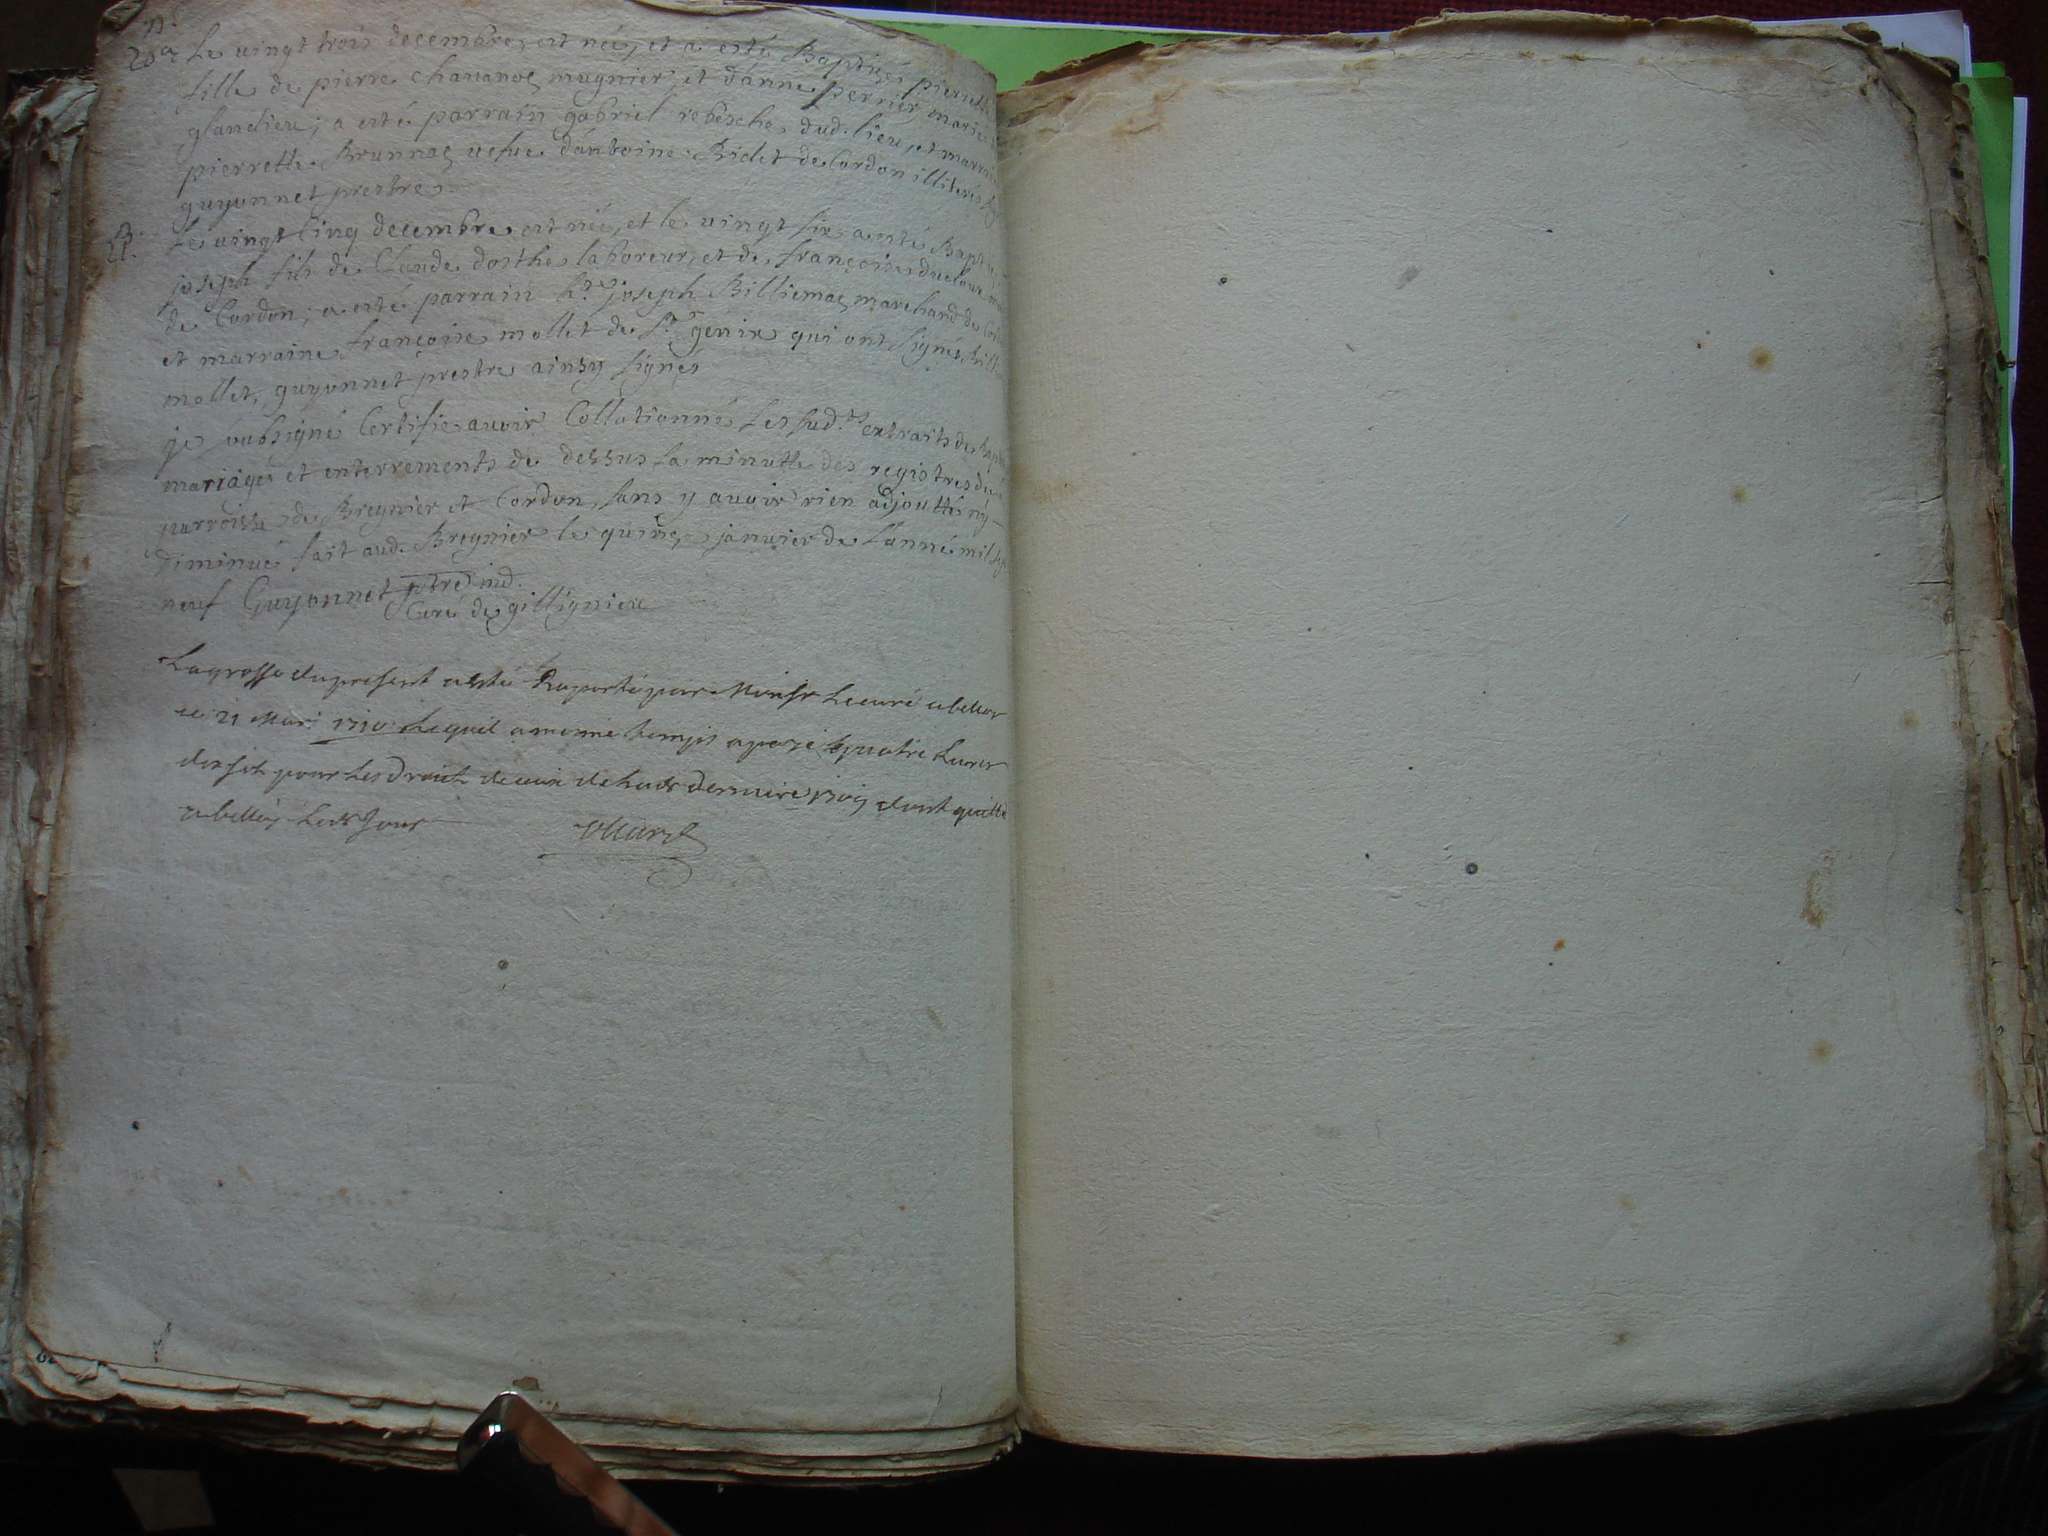 Le vingt trois decembre, est née, et a esté Baptizée pierrette
fille de pierre Chavanoz mugnier, et d'anne perrier, mariés
glandieu; a esté parrain gabriel rebesche, dud. lieu, et marraine
pierrette Brunnaz vefve d'antoine Bidet de Cordon illiterés
guyonnet prestre.
B.
Le vingt Cinq decembre est né, et le vingt six a esté Baptisé
joseph fils de Claude dosthe laboreur, et de françoise
de Cordon; a esté parrain joseph Billiemaz marchand de
et marraine françoise mollet de St genix qui ont signés
mollet, guyonnet prestre ainsy signés
je soubsigné Certifie avoir Collationné les sud.ts extraits de
mariages et enterrements de dessus la minutte des registres de
parroisse de Bregnier et Cordon, sans y avoir rien adjoutté ny
diminué fait aud. Bregnier le quinze janvier de l'anné mil
neuf Guyonnet ptre ind.
Curé de gillignieu
La grosse du present a esté Raportée par Monsr Le curé a belley
ce 21 Mars 1710 Lequel a mesme temps a payé quatre Livres
pour Les Droits de lad. derniere dont quitte
a belley Led. Jour